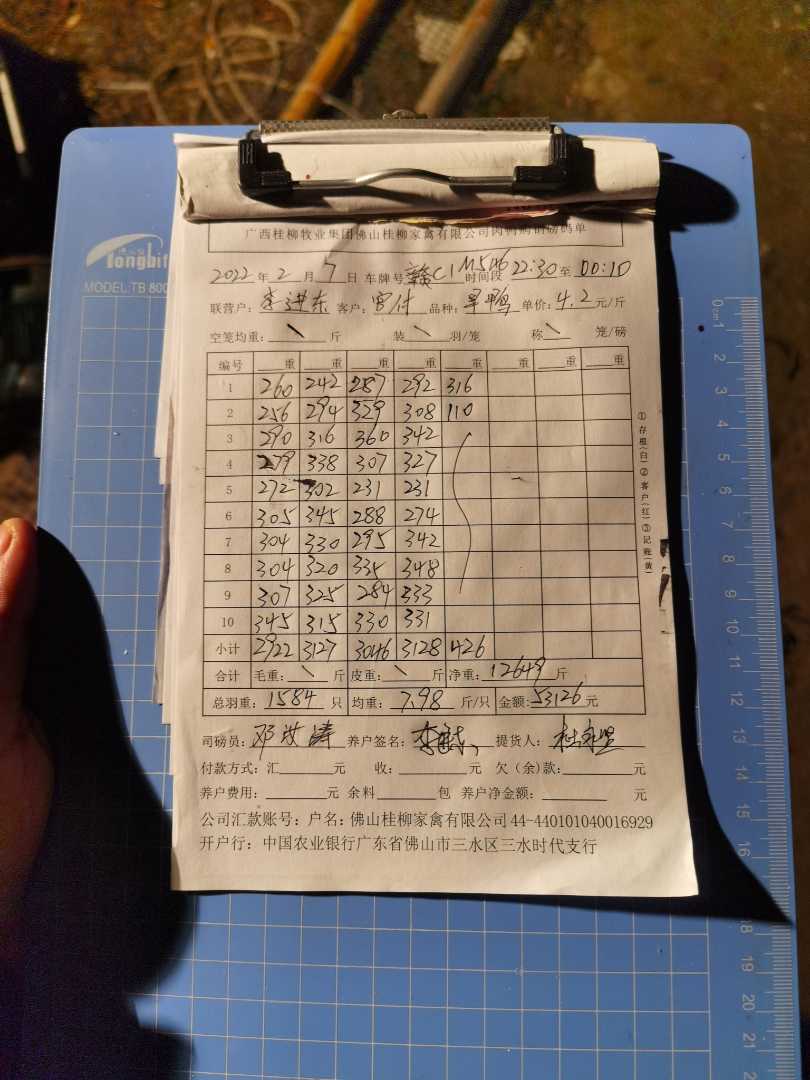 Tongbit
MODEL:TB 800
广西桂柳牧业集团佛山桂柳家禽有限公司肉鸭购销磅码单
2022年2月7日 车牌号 赣C1M5116 时间段 22:30至00:10
联营户: 李进东 客户: 品种: 旱鸭 单价: 4.2元/斤
空笼均重: \ 斤 装 \ 羽/笼 称 \ 笼/磅
编号 重 重 重 重 重 重 重 重
1 260 242 287 292 316
2 256 294 329 308 110
3 290 316 360 342
4 279 338 307 327
5 272 302 231 231
6 305 345 288 274
7 304 330 295 342
8 304 320 335 348
9 307 325 284 333
10 345 315 330 331
小计 2922 3127 3046 3128 426
合计 毛重: \ 斤 皮重: \ 斤 净重: 12649斤
总羽重: 1584只 均重: 7.98斤/只 金额: 53126元
司磅员: 养户签名: 提货人:
付款方式: 汇 元 收: 元 欠(余)款: 元
养户费用: 元 余料 包 养户净金额: 元
公司汇款账号: 户名: 佛山桂柳家禽有限公司 44-440101040016929
开户行: 中国农业银行广东省佛山市三水区三水时代支行
①存根(白)②客户(红)③记账(黄)
0cm1 2 3 4 5 6 7 8 9 10 11 12 13 14 15 16 18 19 20 21